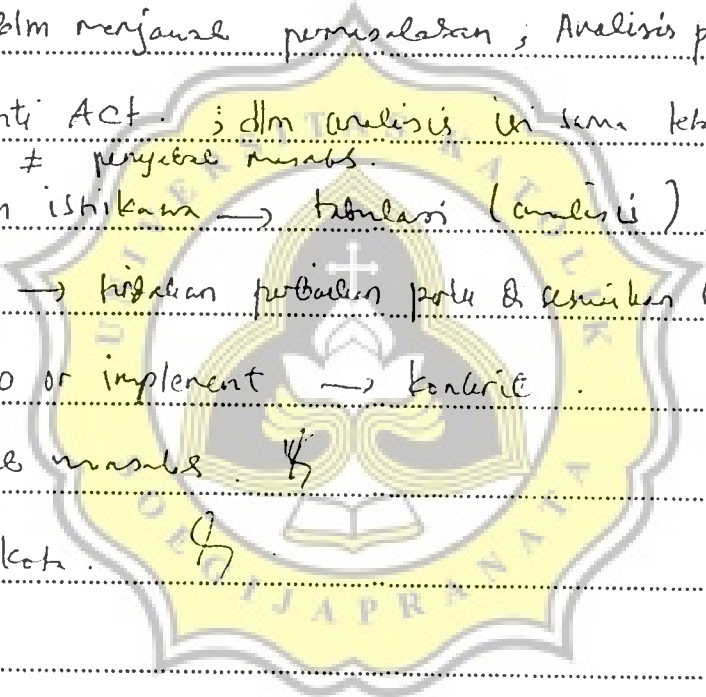 dlm menjawab permasalahan ; Analisis p
nti ACT. ; dlm analisis ini sama
≠ penyebab masalah.
n ishikawa → tabulasi (analisis)
→ tindakan perbaikan perlu di sesuaikan
o or implement → konkrit.
masalah.
kata.
UNIVERSITAS KATOLIK
SOEGIJAPRANATA